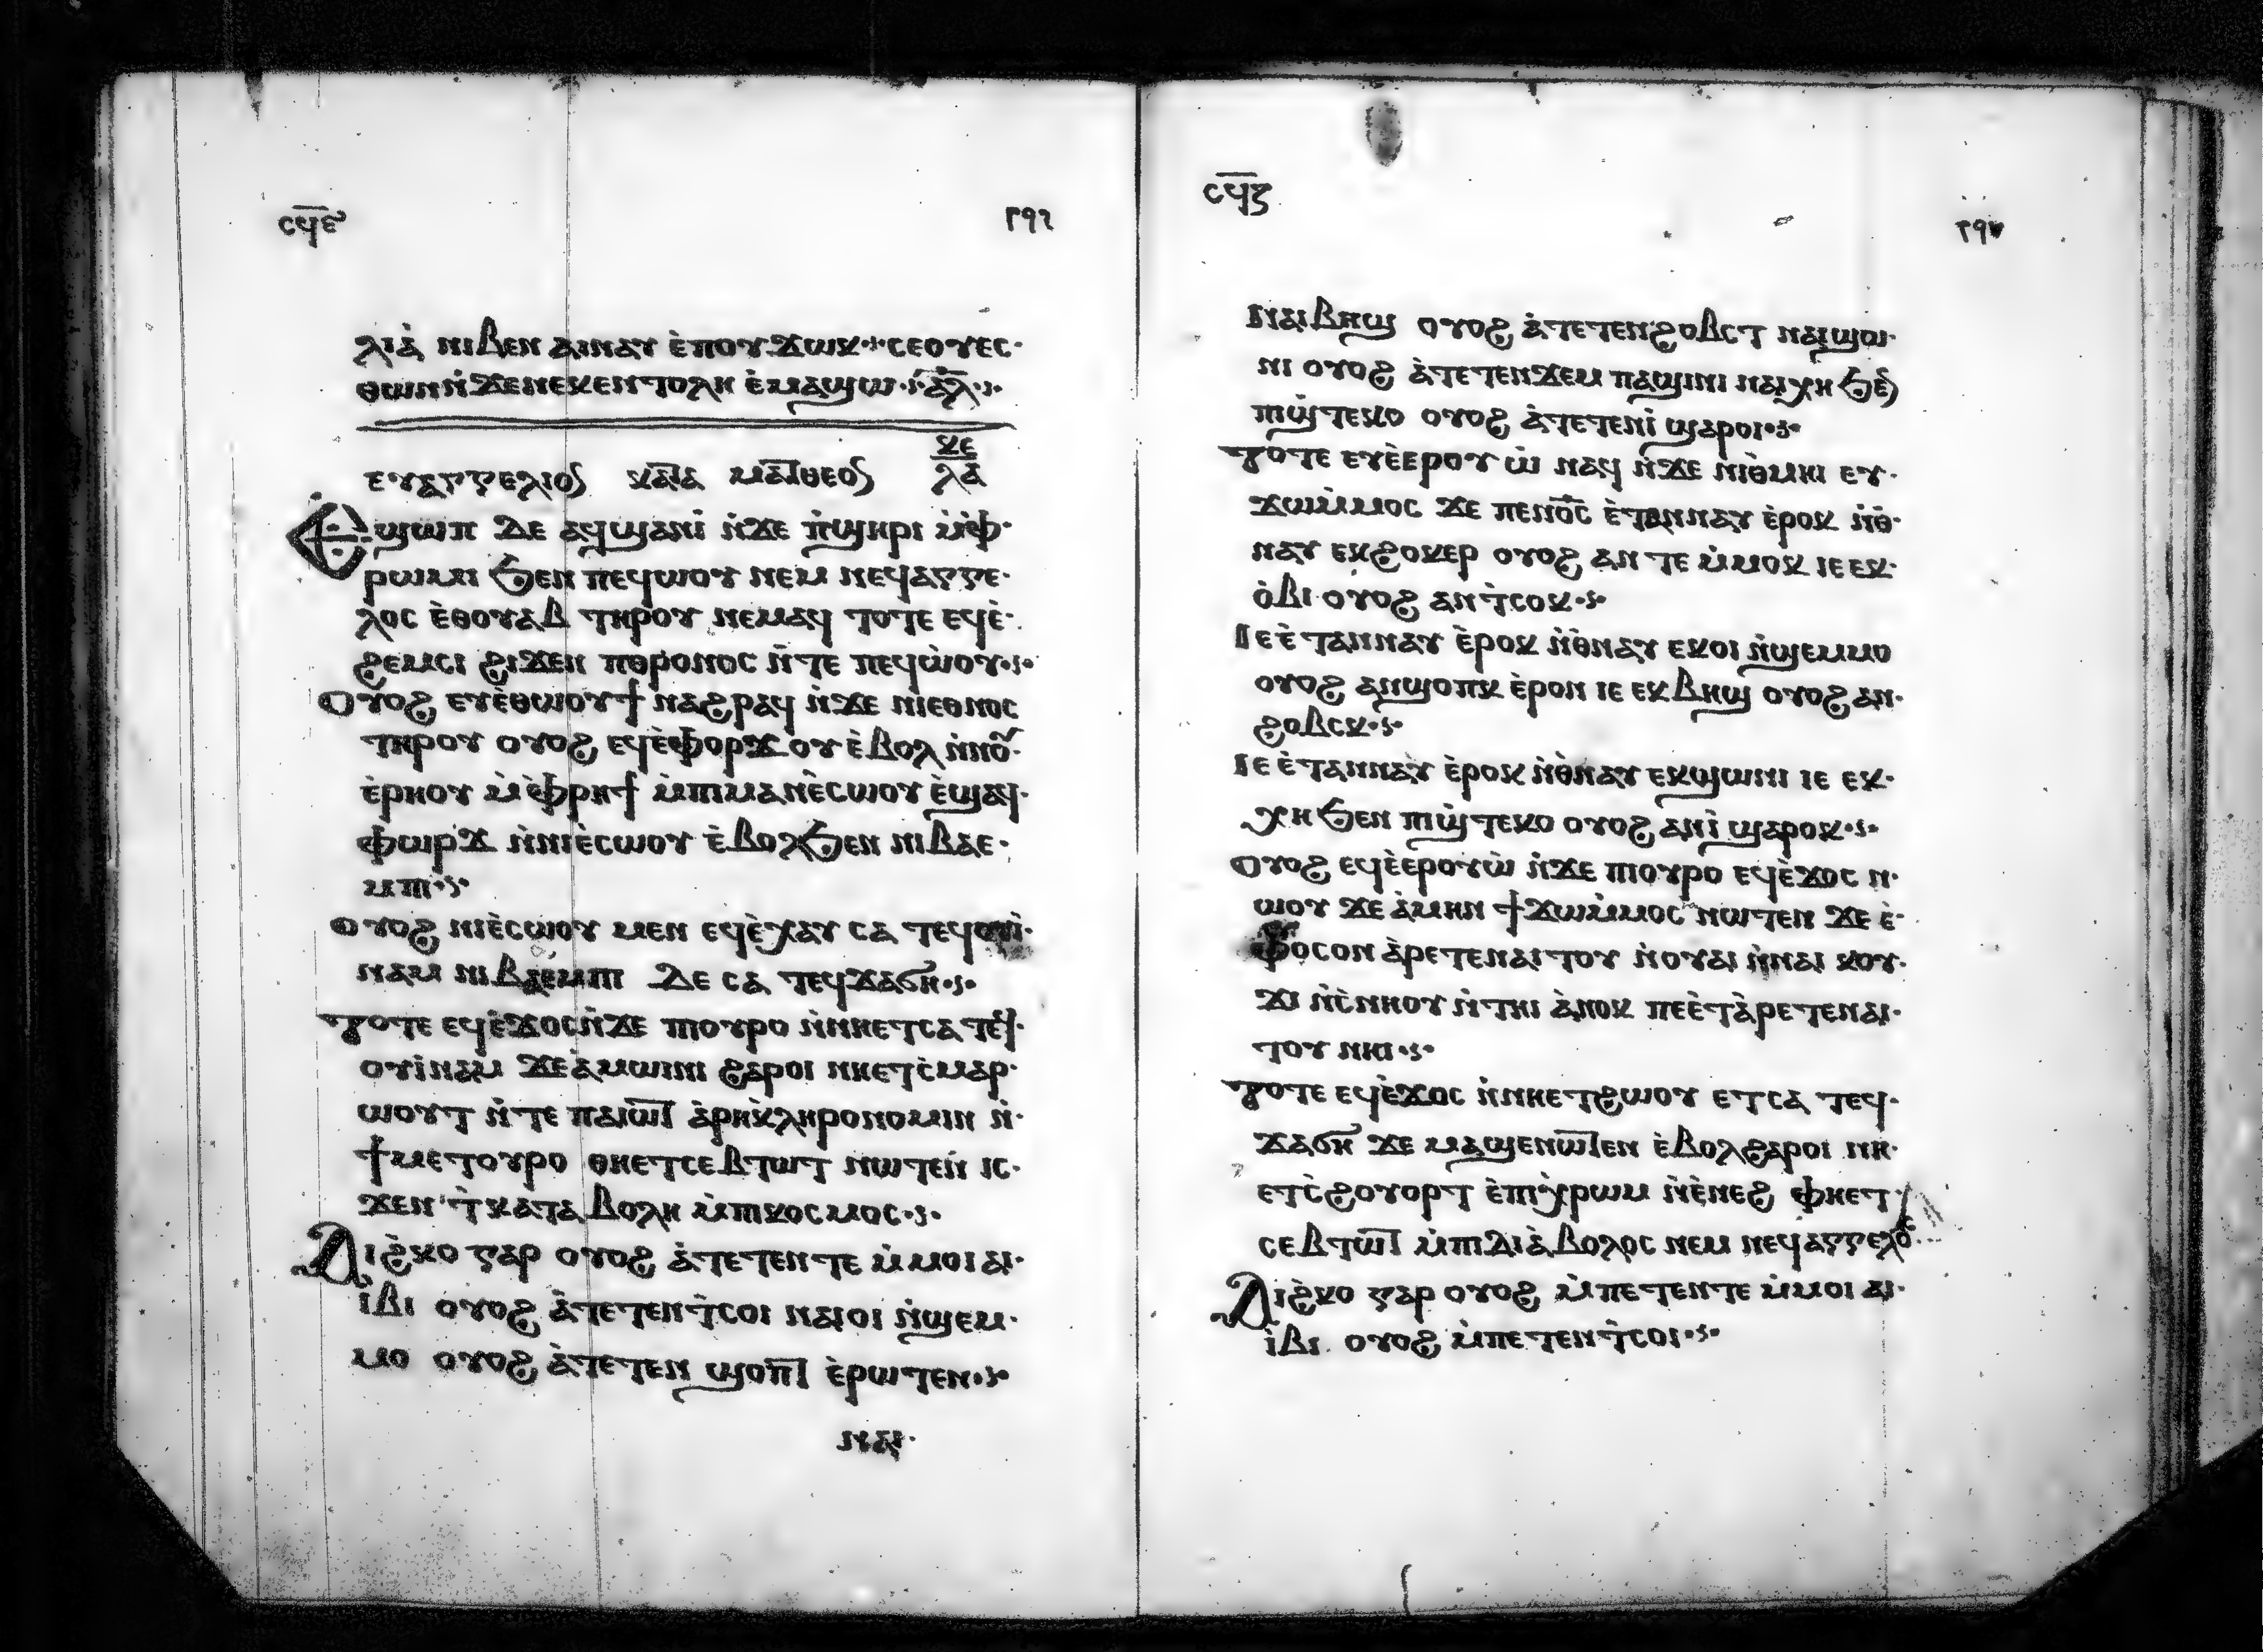 ⲥϥ̅ⲉ ⲣϥⲋ
ⲗⲓⲁ̀ ⲛⲓⲃⲉⲛ ⲁⲓⲛⲁⲩ ⲉ̀ⲡⲟⲩϫⲱⲕ ⲥⲉⲟⲩⲉⲥ
ⲑⲱⲛ ⲛ̀ϫⲉⲛⲉⲕⲉⲛⲧⲟⲗⲏ ⲉ̀ⲙⲁϣⲱ ⲁ̅ⲗ̅
ⲕⲉ
ⲉⲩⲁⲅⲅⲉⲗⲓⲟⲛ ⲕⲁⲧⲁ ⲙⲁⲧⲑⲉⲟⲛ ⲗⲁ̅
Ⲉϣⲱⲡ ⲇⲉ ⲁϥϣⲁⲛⲓ̀ ⲛ̀ϫⲉ ⲡ̀ϣⲏⲣⲓ ⲙ̀ⲫ̀
ⲣⲱⲙⲓ ϧⲉⲛ ⲡⲉϥⲱⲟⲩ ⲛⲉⲙ ⲛⲉϥⲁⲅⲅⲉ
ⲗⲟⲥ ⲉ̀ⲑⲟⲩⲁⲃ ⲧⲏⲣⲟⲩ ⲛⲉⲙⲁϥ ⲧⲟⲧⲉ ⲉϥⲉ̀
ϩⲉⲙⲥⲓ ϩⲓϫⲉⲛ ⲡⲑⲣⲟⲛⲟⲥ ⲛ̀ⲧⲉ ⲡⲉϥⲱ̀ⲟⲩ
Ⲟⲩⲟϩ ⲉⲩⲉ̀ⲑⲱⲟⲩϯ ⲛⲁϩⲣⲁϥ ⲛ̀ϫⲉ ⲛⲓⲉⲑⲛⲟⲥ
ⲧⲏⲣⲟⲩ ⲟⲩⲟϩ ⲉϥⲉ̀ⲫⲟⲣϫⲟⲩ ⲉ̀ⲃⲟⲗ ⲛ̀ⲛⲟⲩ
ⲉ̀ⲣⲏⲟⲩ ⲙ̀ⲫ̀ⲣⲏϯ ⲙ̀ⲡⲓⲙⲁⲛⲉ̀ⲥⲱⲟⲩ ⲉ̀ϣⲁϥ
ⲫⲱⲣϫ ⲛ̀ⲛⲓⲉ̀ⲥⲱⲟⲩ ⲉ̀ⲃⲟⲗϧⲉⲛ ⲛⲓⲃⲁⲉ
ⲙⲡⲓ
Ⲟⲩⲟϩ ⲛⲓⲉ̀ⲥⲱⲟⲩ ⲙⲉⲛ ⲉϥⲉ̀ⲭⲁⲩ ⲥⲁ ⲧⲉϥⲟⲩⲓ̀
ⲛⲁⲙ ⲛⲓⲃⲁⲉⲙⲡⲓ ⲇⲉ ⲥⲁ ⲧⲉϥϫⲁϭⲏ
Ⲧⲟⲧⲉ ⲉϥⲉ̀ϫⲟⲥ ⲛ̀ϫⲉ ⲡⲓⲟⲩⲣⲟ ⲛ̀ⲛⲏⲉⲧⲥⲁ ⲧⲉϥ
ⲟⲩⲓ̀ⲛⲁⲙ ϫⲉ ⲁ̀ⲙⲱⲓⲛⲓ ϩⲁⲣⲟⲓ ⲛⲏⲉⲧⲥ̀ⲙⲁⲣ
ⲱⲟⲩⲧ ⲛ̀ⲧⲉ ⲡⲁⲓⲱⲧ ⲁ̀ⲣⲓⲕ̀ⲗⲏⲣⲟⲛⲟⲙⲓⲛ ⲛ̀
ϯⲙⲉⲧⲟⲩⲣⲟ ⲑⲏⲉⲧⲥⲉⲃⲧⲱⲧ ⲛⲱⲧⲉⲛ ⲓⲥ
ϫⲉⲛ ⲧ̀ⲕⲁⲧⲁⲃⲟⲗⲏ ⲙ̀ⲡⲓⲕⲟⲥⲙⲟⲥ
Ⲁⲓϩ̀ⲕⲟ ⲅⲁⲣ ⲟⲩⲟϩ ⲁ̀ⲧⲉⲧⲉⲛⲧⲉⲙ̀ⲙⲟⲓ ⲁⲓ
ⲓ̀ⲃⲓ ⲟⲩⲟϩ ⲁ̀ⲧⲉⲧⲉⲛⲧ̀ⲥⲟⲓ ⲛⲁⲓⲟⲓ ⲛ̀ϣⲉⲙ
ⲙⲟ ⲟⲩⲟϩ ⲁ̀ⲧⲉⲧⲉⲛ ϣⲟⲡⲧ ⲉ̀ⲣⲱⲧⲉⲛ
ⲛⲁⲓ
ⲥϥ̅ⲋ
ⲛⲁⲓⲃⲏϣ ⲟⲩⲟϩ ⲁ̀ⲧⲉⲧⲉⲛϩⲟⲃⲥⲧ ⲛⲁⲓϣⲱ
ⲛⲓ ⲟⲩⲟϩ ⲁ̀ⲧⲉⲧⲉⲛϫⲉⲙ ⲡⲁϣⲓⲛⲓ ⲛⲁⲓⲭⲏ ϧⲉⲛ
ⲡⲓϣ̀ⲧⲉⲕⲟ ⲟⲩⲟϩ ⲁ̀ⲧⲉⲧⲉⲛⲓ̀ ϣⲁⲣⲟⲓ
Ⲧⲟⲧⲉ ⲉⲩⲉ̀ⲉⲣⲟⲩⲱ̀ ⲛⲁϥ ⲛ̀ϫⲉ ⲛⲓⲑⲙⲏⲓ ⲉⲩ
ϫⲱⲙ̀ⲙⲟⲥ ϫⲉ ⲡⲉⲛⲟ̅ⲥ̅ ⲉ̀ⲧⲁⲛⲛⲁⲩ ⲉ̀ⲣⲟⲕ ⲛ̀ⲑ̀
ⲛⲁⲩ ⲉⲕϩⲟⲕⲉⲣ ⲟⲩⲟϩ ⲁⲛⲧⲉⲙ̀ⲙⲟⲕ ⲓⲉ ⲉⲕ
ⲟ̀ⲃⲓ ⲟⲩⲟϩ ⲁⲛⲧ̀ⲥⲟⲕ
Ⲓⲉ ⲉ̀ⲧⲁⲛⲛⲁⲩ ⲉ̀ⲣⲟⲕ ⲛ̀ⲑ̀ⲛⲁⲩ ⲉⲕⲟⲓ ⲛ̀ϣⲉⲙⲙⲟ
ⲟⲩⲟϩ ⲁⲛϣⲟⲡⲕ ⲉ̀ⲣⲟⲛ ⲓⲉ ⲉⲕⲃⲏϣ ⲟⲩⲟϩ ⲁⲛ
ϩⲟⲃⲥⲕ
Ⲓⲉ ⲉ̀ⲧⲁⲛⲛⲁⲩ ⲉ̀ⲣⲟⲕ ⲛ̀ⲑ̀ⲛⲁⲩ ⲉⲕϣⲱⲛⲓ ⲓⲉ ⲉⲕ
ⲭⲏ ϧⲉⲛ ⲡⲓϣ̀ⲧⲉⲕⲟ ⲟⲩⲟϩ ⲁⲛⲓ̀ ϣⲁⲣⲟⲕ
Ⲟⲩⲟϩ ⲉϥⲉ̀ⲉⲣⲟⲩⲱ̀ ⲛ̀ϫⲉ ⲡⲓⲟⲩⲣⲟ ⲉϥⲉ̀ϫⲟⲥ ⲛ
ⲱⲟⲩ ϫⲉ ⲁ̀ⲙⲏⲛ ϯϫⲱⲙ̀ⲙⲟⲥ ⲛⲱⲧⲉⲛ ϫⲉ ⲉ̀
ⲫⲟⲥⲟⲛ ⲁ̀ⲣⲉⲧⲉⲛⲁⲓⲧⲟⲩ ⲛ̀ⲟⲩⲁⲓ ⲛ̀ⲛⲁⲓ ⲕⲟⲩ
ϫⲓ ⲛ̀ⲥ̀ⲛⲏⲟⲩ ⲛ̀ⲧⲏⲓ ⲁ̀ⲛⲟⲕ ⲡⲉⲉ̀ⲧⲁ̀ⲣⲉⲧⲉⲛⲁⲓ
ⲧⲟⲩ ⲛⲏⲓ
Ⲧⲟⲧⲉ ⲉϥⲉ̀ϫⲟⲥ ⲛ̀ⲛⲏⲉⲧϩⲱⲟⲩ ⲉⲧⲥⲁ ⲧⲉϥ
ϫⲁϭⲏ ϫⲉ ⲙⲁϣⲉⲛⲱⲧⲉⲛ ⲉ̀ⲃⲟⲗϩⲁⲣⲟⲓ ⲛⲏ
ⲉⲧⲥ̀ϩⲟⲩⲟⲣⲧ ⲉ̀ⲡⲓⲭ̀ⲣⲱⲙ ⲛ̀ⲉ̀ⲛⲉϩ ⲫⲏⲉⲧ
ⲥⲉⲃⲧⲱⲧ ⲙ̀ⲡⲓⲇⲓⲁ̀ⲃⲟⲗⲟⲥ ⲛⲉⲙ ⲛⲉϥⲁⲅⲅⲉⲗⲟⲥ
Ⲁⲓϩ̀ⲕⲟ ⲅⲁⲣ ⲟⲩⲟϩ ⲙ̀ⲡⲉⲧⲉⲛⲧⲉⲙ̀ⲙⲟⲓ ⲁⲓ
ⲓ̀ⲃⲓ ⲟⲩⲟϩ ⲙ̀ⲡⲉⲧⲉⲛⲧ̀ⲥⲟⲓ